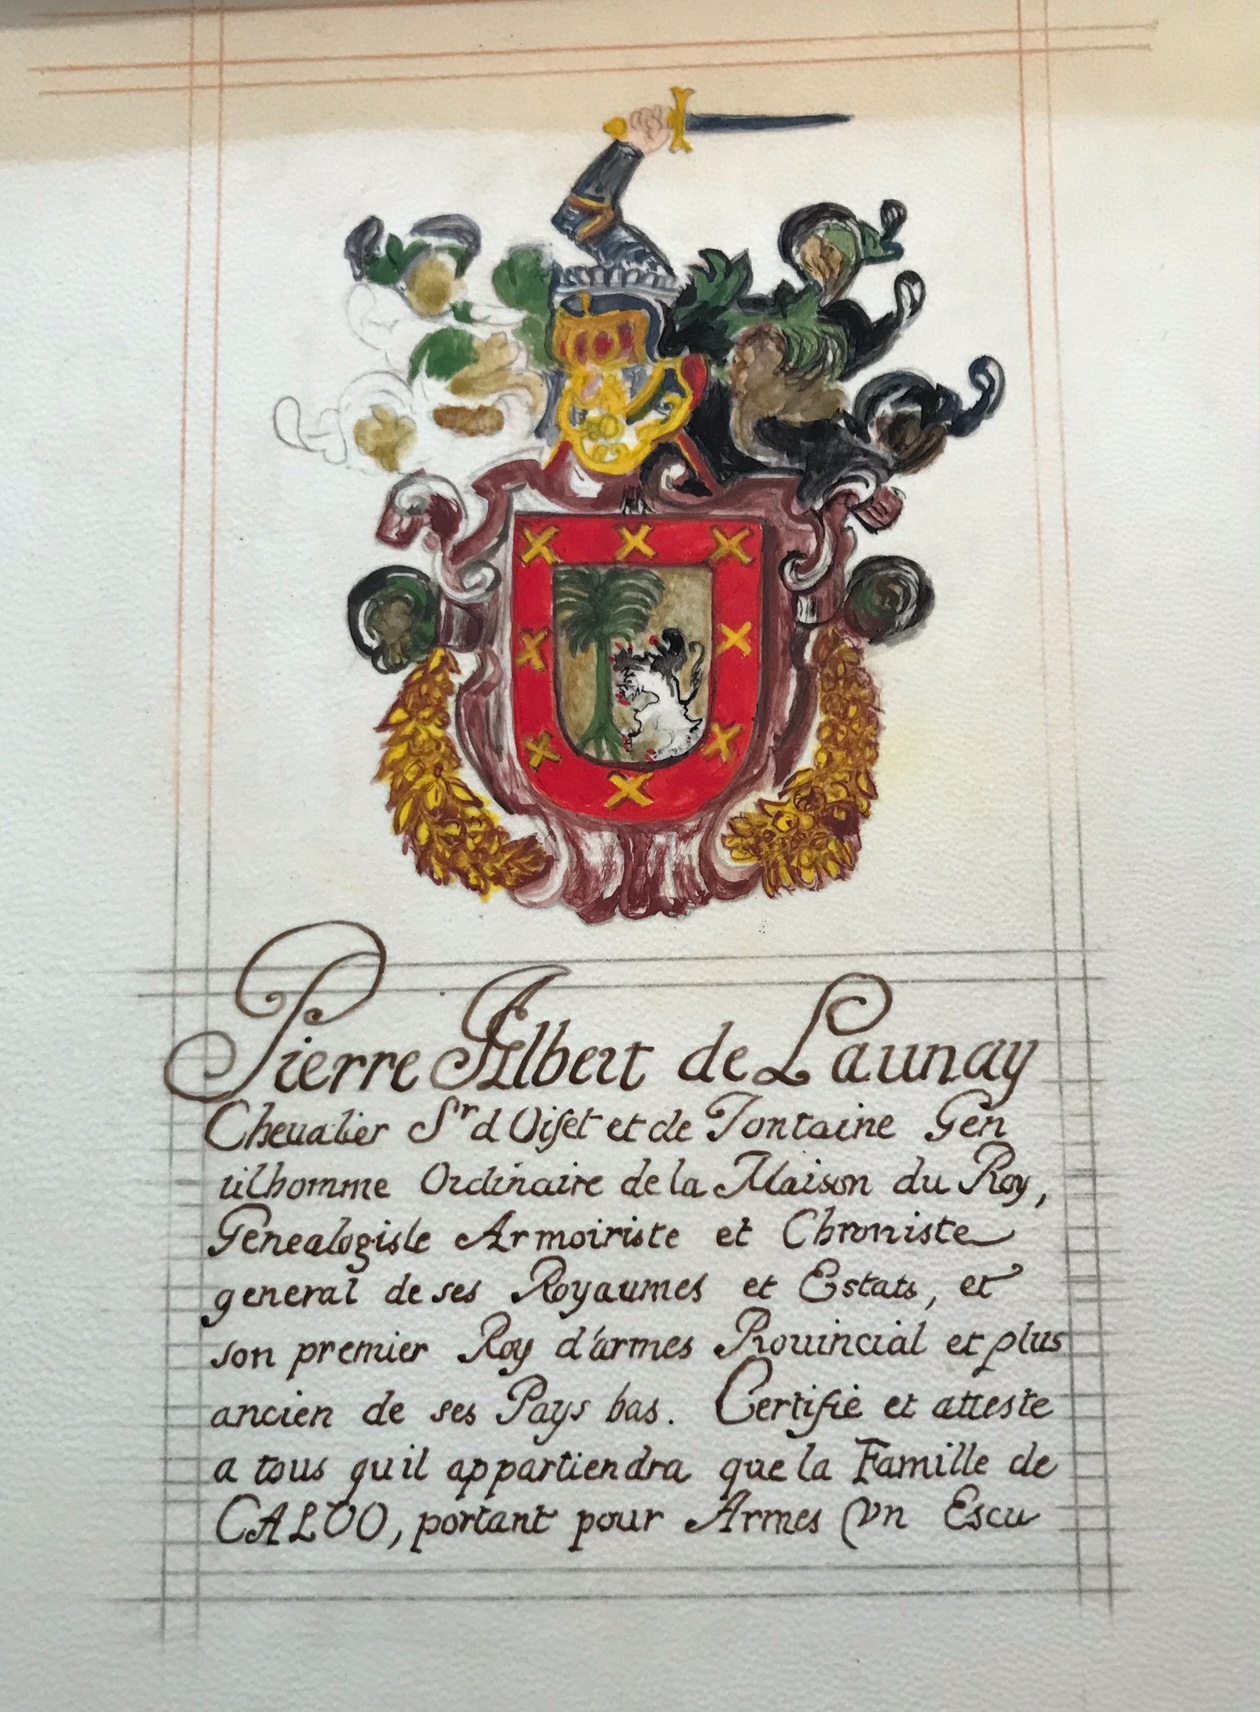 Pierre Albert de Launay
Cheualier Sr d Oiset et de Fontaine Gen
tilhomme Ordinaire de la Maison du Roy,
Genealogiste Armoiriste et Chroniste
general de ses Royaumes et Estats, et
son premier Roy d'armes Prouincial et plus
ancien de ses Pays bas. Certifie et atteste
a tous quil appartiendra que la Famille de
CALVO, portant pour Armes Vn Escu